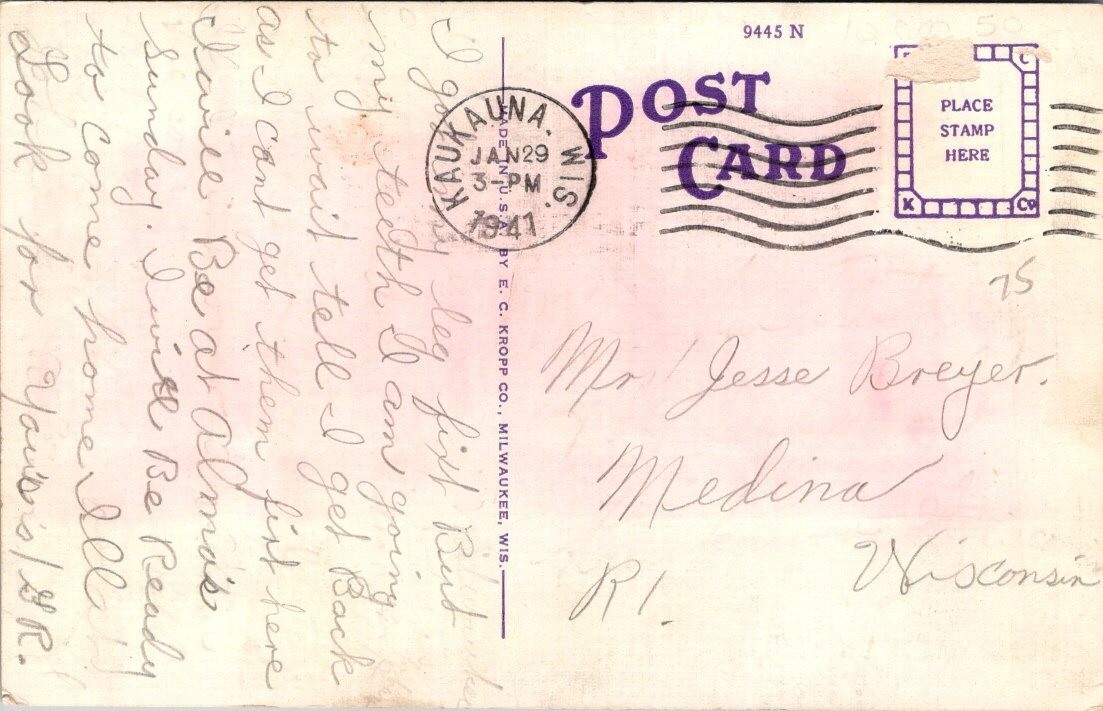 9445 N
POST
CARD
PLACE
STAMP
HERE
K Co
KAUKAUNA. WIS.
JAN 29
3-PM
1941
MADE IN U.S.A. BY E. C. KROPP CO., MILWAUKEE, WIS.
I got my leg fixt But
my teeth I am going
to wait tell I get Back
as I cant get them fixt here
I wile Be at Alma's
Sunday. I wile Be Ready
to come home Ill
Look for You's/
75
Mr Jesse Breyer.
Medina
R1. Wisconsin